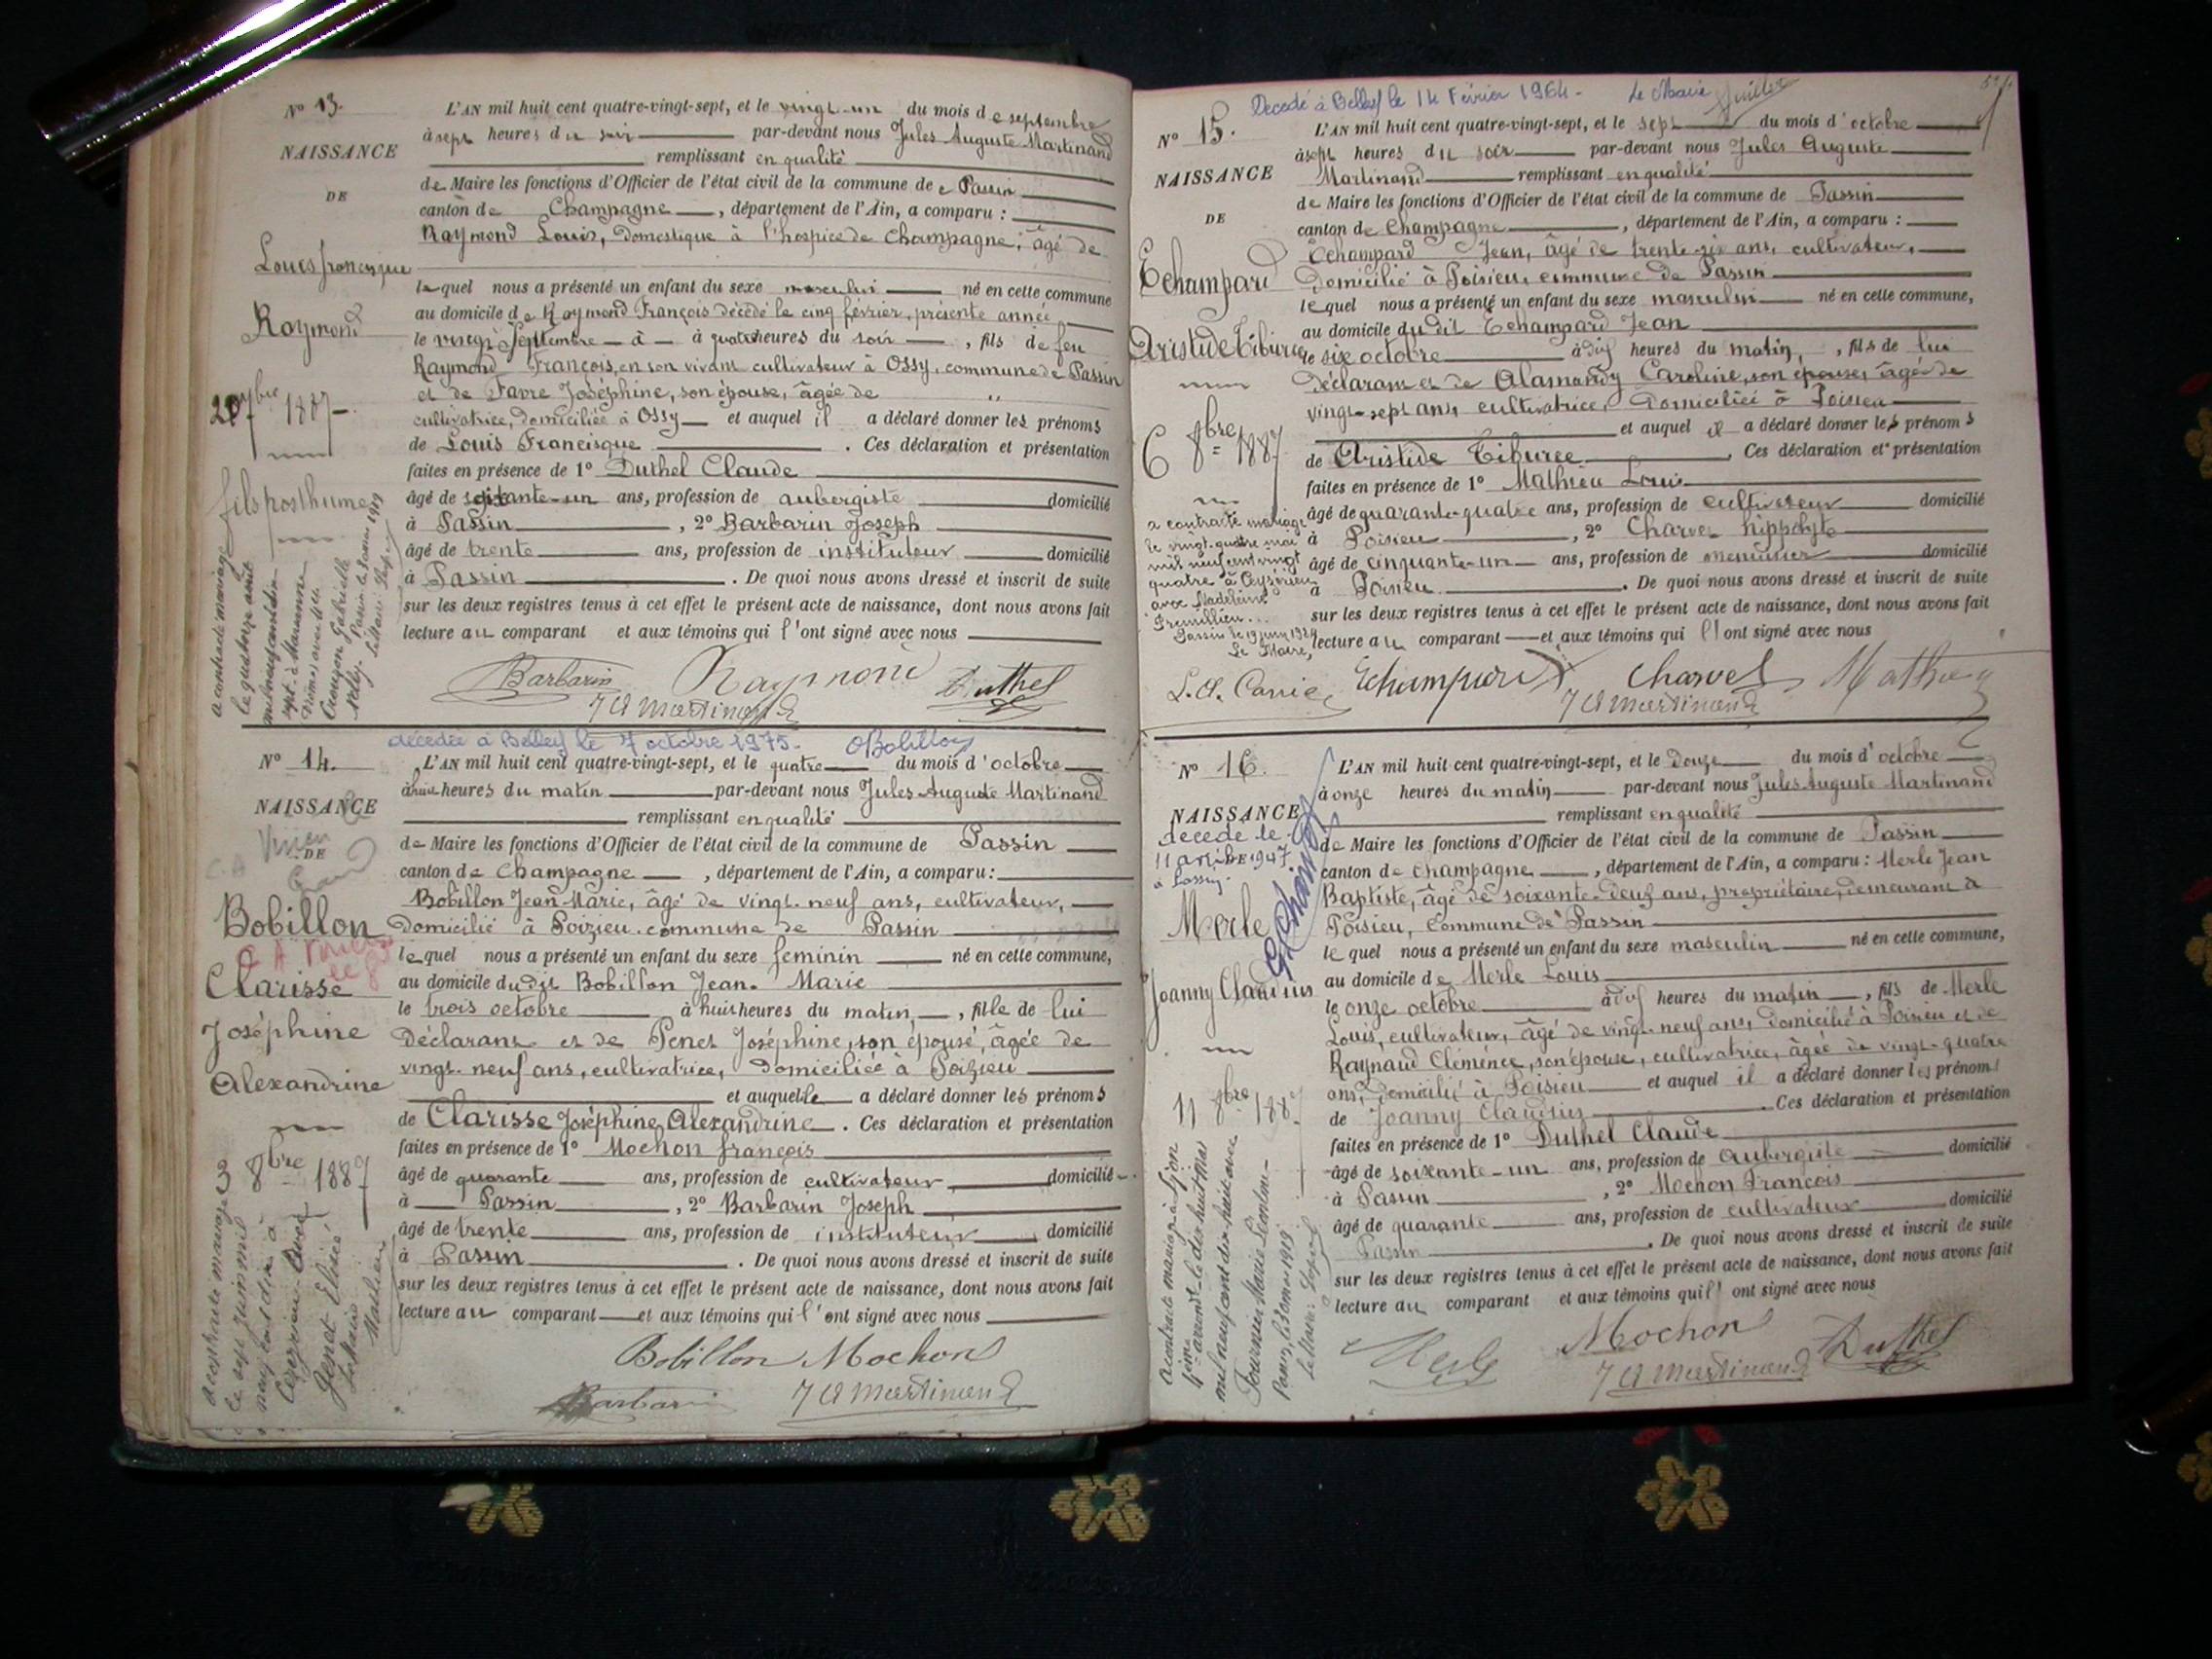 N° 13.
NAISSANCE
DE
Louis francisque
Raymond
20 7bre 1887
fils posthume
a contracté mariage
L'AN mil huit cent quatre-vingt-sept, et le vingt-un du mois de septembre
à sept heures du soir par-devant nous Jules Auguste Martinand
remplissant en qualité
de Maire les fonctions d'Officier de l'état civil de la commune de Passin
canton de Champagne, département de l'Ain, a comparu :
Raymond Louis, domestique à l'hospice de Champagne, âgé de
lequel nous a présenté un enfant du sexe masculin né en cette commune
au domicile de Raymond François décédé le cinq février, présente année
le vingt Septembre à à quatre heures du soir, fils de feu
Raymond François, en son vivant cultivateur à Ossy, commune de Passin
et de Favre Joséphine, son épouse, âgée de "
cultivatrice, domiciliée à Ossy et auquel il a déclaré donner les prénoms
de Louis Francisque. Ces déclaration et présentation
faites en présence de 1° Duthel Claude
âgé de soixante-un ans, profession de aubergiste domicilié
à Passin, 2° Barbarin Joseph
âgé de trente ans, profession de instituteur domicilié
à Passin. De quoi nous avons dressé et inscrit de suite
sur les deux registres tenus à cet effet le présent acte de naissance, dont nous avons fait
lecture au comparant et aux témoins qui l'ont signé avec nous
Barbarin Raymond Duthel
J A Martinand
décédée à Belley le 7 octobre 1975. Bobillon
N° 14.
NAISSANCE
DE
Bobillon
Clarisse
Joséphine
Alexandrine
3 8bre 1887
a contracté mariage
L'AN mil huit cent quatre-vingt-sept, et le quatre du mois d'octobre
à huit heures du matin par-devant nous Jules Auguste Martinand
remplissant en qualité
de Maire les fonctions d'Officier de l'état civil de la commune de Passin
canton de Champagne, département de l'Ain, a comparu :
Bobillon Jean Marie, âgé de vingt-neuf ans, cultivateur,
domicilié à Poizieu commune de Passin
lequel nous a présenté un enfant du sexe feminin né en cette commune,
au domicile dudit Bobillon Jean-Marie
le trois octobre à huit heures du matin, fille de lui
Déclarant et de Penet Joséphine, son épouse, âgée de
vingt-neuf ans, cultivatrice, domiciliée à Poizieu
et auquelle a déclaré donner les prénoms
de Clarisse Joséphine Alexandrine. Ces déclaration et présentation
faites en présence de 1° Mochon françois
âgé de quarante ans, profession de cultivateur domicilié
à Passin, 2° Barbarin Joseph
âgé de trente ans, profession de instituteur domicilié
à Passin. De quoi nous avons dressé et inscrit de suite
sur les deux registres tenus à cet effet le présent acte de naissance, dont nous avons fait
lecture au comparant et aux témoins qui l'ont signé avec nous
Bobillon Mochon
Barbarin J A Martinand
Décédé à Belley le 14 Février 1964. Le Maire
N° 15.
NAISSANCE
DE
Echampard
Aristide Tiburce
6 8bre 1887
a contracté mariage
le vingt-quatre mai
mil neuf cent vingt
quatre à Ceyzérieu
avec Madeleine
Passin le 19 juin 1924
Le Maire,
L'AN mil huit cent quatre-vingt-sept, et le sept du mois d'octobre
à sept heures du soir par-devant nous Jules Auguste
Martinand remplissant en qualité
de Maire les fonctions d'Officier de l'état civil de la commune de Passin
canton de Champagne, département de l'Ain, a comparu :
Echampard Jean, âgé de trente-six ans, cultivateur,
Domicilié à Poisieu, commune de Passin
lequel nous a présenté un enfant du sexe masculin né en cette commune,
au domicile dudit Echampard Jean
le six octobre à dix heures du matin, fils de lui
déclarant et de Alamandy Caroline, son épouse, âgée de
vingt-sept ans, cultivatrice, domiciliée à Poisieu
et auquel il a déclaré donner les prénoms
de Aristide Tiburce. Ces déclaration et présentation
faites en présence de 1° Mathieu Louis
âgé de quarante-quatre ans, profession de cultivateur domicilié
à Poisieu, 2° Charvet hippolyte
âgé de cinquante-un ans, profession de menuisier domicilié
à Poisieu. De quoi nous avons dressé et inscrit de suite
sur les deux registres tenus à cet effet le présent acte de naissance, dont nous avons fait
lecture au comparant et aux témoins qui l'ont signé avec nous
Echampard Charvet Mathieu
J A Martinand
N° 16.
NAISSANCE
décédé le
11 1947
Merle
Joanny Claudius
11 8bre 1887
a contracté mariage à Lyon
L'AN mil huit cent quatre-vingt-sept, et le Douze du mois d'octobre
à onze heures du matin par-devant nous Jules Auguste Martinand
remplissant en qualité
de Maire les fonctions d'Officier de l'état civil de la commune de Passin
canton de Champagne, département de l'Ain, a comparu : Merle Jean
Baptiste, âgé de soixante-deux ans, propriétaire, demeurant à
Poisieu, Commune de Passin
lequel nous a présenté un enfant du sexe masculin né en cette commune,
au domicile de Merle Louis
le onze octobre à dix heures du matin, fils de Merle
Louis, cultivateur, âgé de vingt-neuf ans, domicilié à Poisieu et de
Raynaud Clémence, son épouse, cultivatrice, âgée de vingt-quatre
ans, domicilié à Poisieu et auquel il a déclaré donner les prénoms
de Joanny Claudius. Ces déclaration et présentation
faites en présence de 1° Duthel Claude
âgé de soixante-un ans, profession de Aubergiste domicilié
à Passin, 2° Mochon François
âgé de quarante ans, profession de cultivateur domicilié
Passin. De quoi nous avons dressé et inscrit de suite
sur les deux registres tenus à cet effet le présent acte de naissance, dont nous avons fait
lecture au comparant et aux témoins qui l'ont signé avec nous
Merle Mochon Duthel
J A Martinand